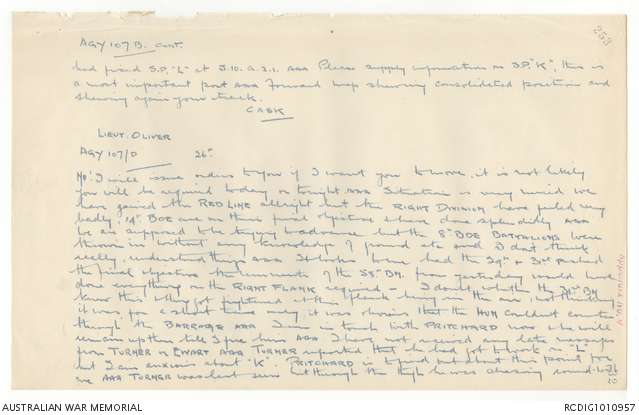 253
AGY 107 B. cont.
had found S.P. "L" at J.10.a.2.1. AAA Please supply information on S.P. "K", this is
a most important post AAA Forward map showing consolidated position and
showing again your track.
CASK
LIEUT. OLIVER
AGY 107/D 26th
No! I will issue orders to you if I want you to move, it is not likely
you will be required today or tonight AAA Situation is very mixed we
have gained the RED LINE allright but the RIGHT DIVISION have failed very
badly, 14th BDE are on their final objectives & have done splendidly AAA
be are supposed to be trying to advance but the 8th BDE BATTALIONS were
thrown in without any knowledge of ground etc and I don't think
really understand things AAA It looks here had the 29th & 31st pushed
the final objective the remnants of the 58th BN. from yesterday would have
done everything on the RIGHT FLANK required - I doubt whether the 31st BN
know this & they got frightened at their flank being in the air, not thinking
it was for a short time only, it was obvious that the HUN couldn't counter
through the BARRAGE AAA I am in touch with PRITCHARD now who will
remain up there till I give him AAA I have not received any late messages
from TURNER or EWART AAA TURNER reported that he had got to work on "L"
but I am anxious about "K". PRITCHARD is beyond but about this point for
me AAA TURNER was last seen hit through the thigh he was chasing round with
AUSTRALIAN WAR MEMORIAL
RCDIG1010957